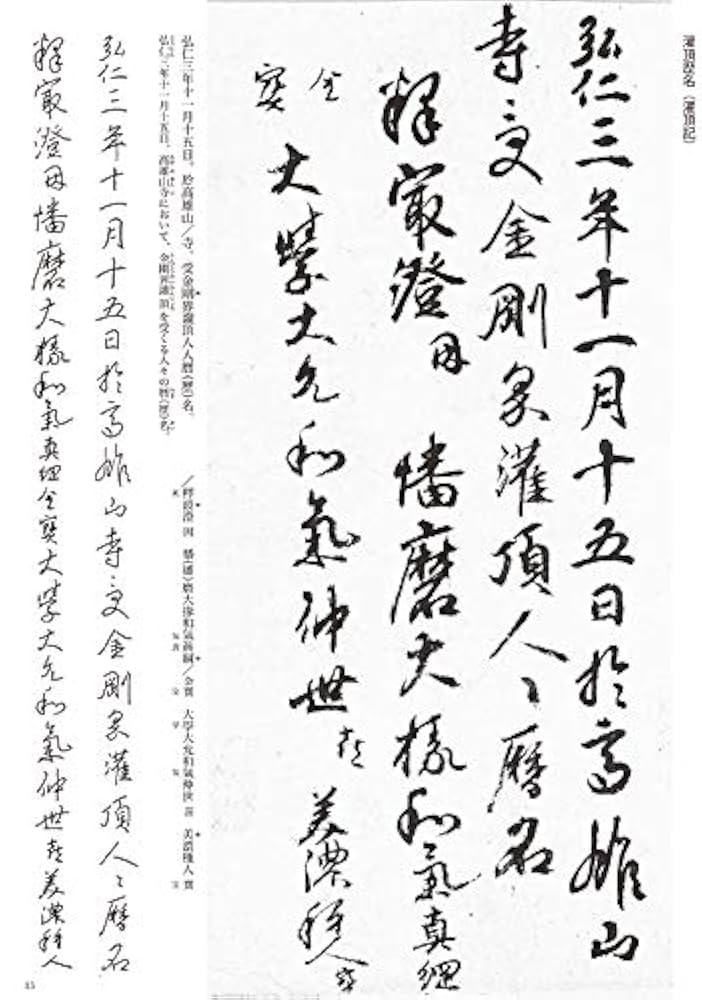 灌頂歴名（灌頂記）
弘仁三年十一月十五日於高雄山
寺受金剛界灌頂人々暦名
釋最澄因 幡磨大掾和氣真綱
金
寶 大學大允和氣仲世喜 美濃種人寶
弘仁三年十一月十五日、於高雄山／寺、受金剛界灌頂人人暦（歴）名。
弘仁三年十一月十五日、高雄山寺において、金剛界灌頂を受くる人々の暦（歴）名。
／釋最澄 因 幡（播）磨大掾和氣真綱／金寶 大學大允和氣仲世 喜 美濃種人 寶
弘仁三年十一月十五日於高雄山寺受金剛界灌頂人々暦名
釋最澄因幡磨大掾和氣真綱金寶大學大允和氣仲世喜美濃種人
15